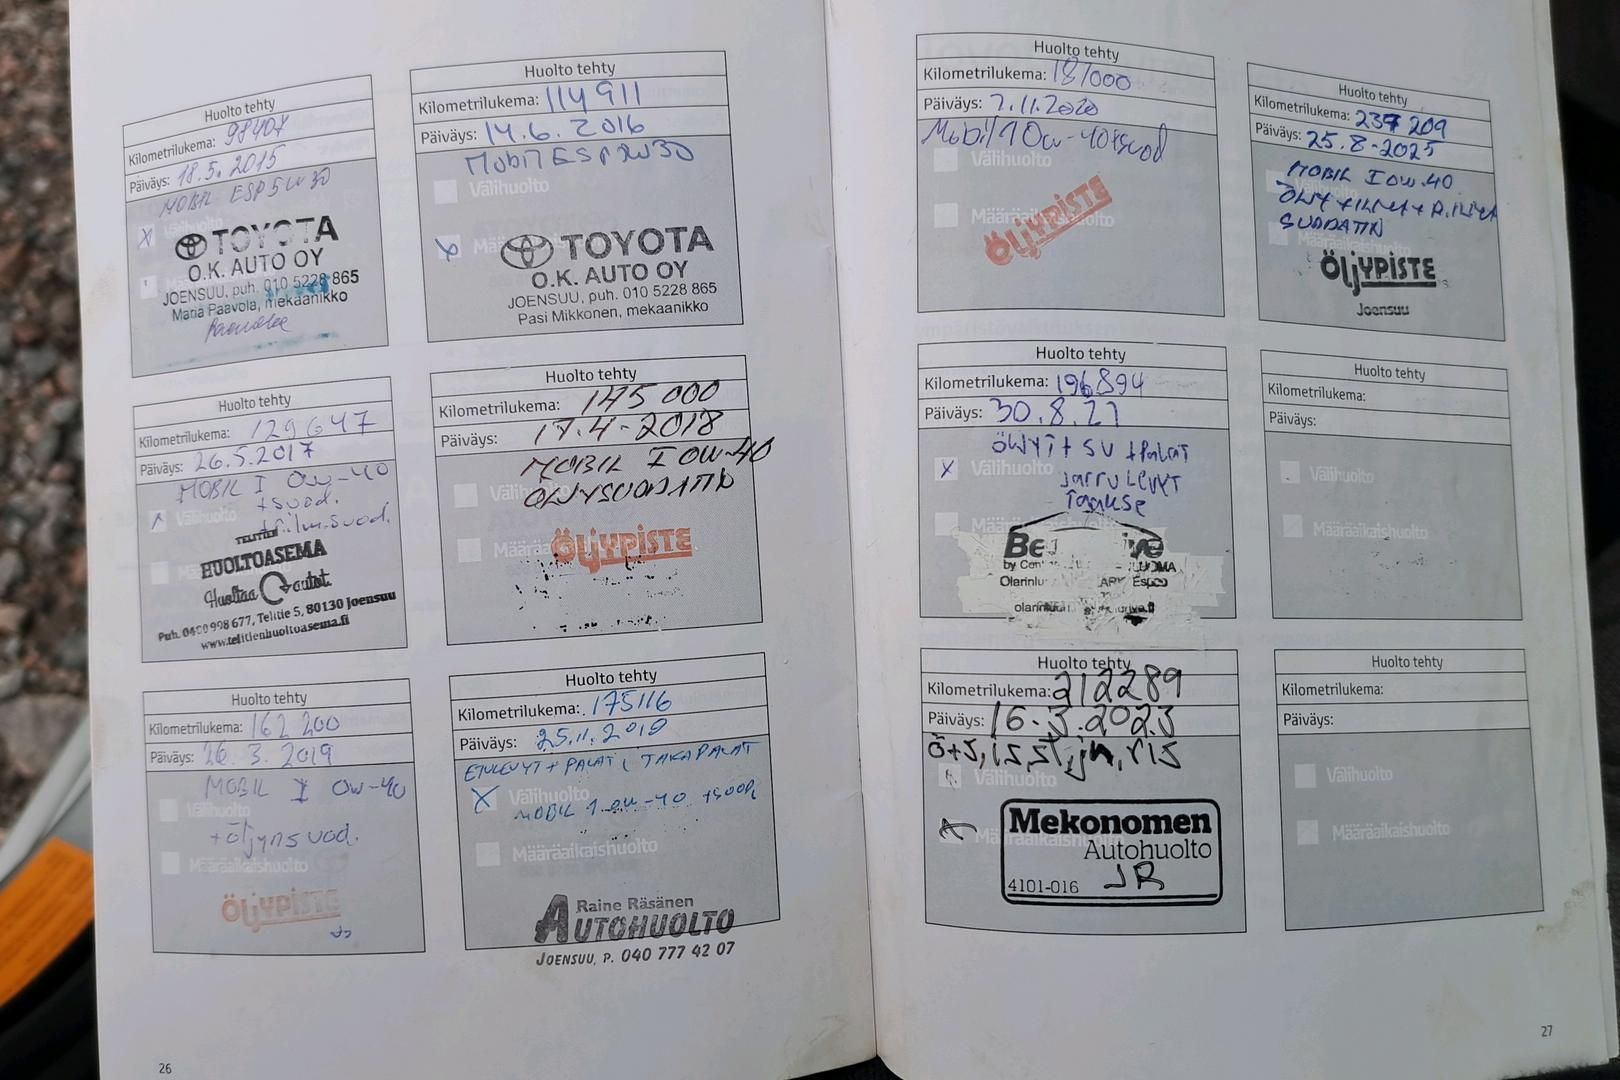 Huolto tehty
Kilometrilukema: 98407
Päiväys: 18.5.2015
MOBIL ESP 5W30
Välihuolto
X
TOYOTA
O.K. AUTO OY
JOENSUU, puh. 010 5228 865
Maria Paavola, mekaanikko
Huolto tehty
Kilometrilukema: 114911
Päiväys: 14.6.2016
Mobil ESP 5W30
Välihuolto
TOYOTA
O.K. AUTO OY
JOENSUU, puh. 010 5228 865
Pasi Mikkonen, mekaanikko
Huolto tehty
Kilometrilukema: 129647
Päiväys: 26.5.2017
MOBIL I 0W-40
+suod.
Välihuolto
+ilm.suod.
TELITIEN
HUOLTOASEMA
Huoltaa autot.
Puh. 0400 998 677, Telitie 5, 80130 Joensuu
www.telitienhuoltoasema.fi
Huolto tehty
Kilometrilukema: 145 000
Päiväys: 17.4-2018
MOBIL I 0W-40
Välihuolto
ÖLJYSUODATIN
ÖLJYPISTE
Huolto tehty
Kilometrilukema: 162 200
Päiväys: 26.3.2019
MOBIL I 0W-40
Välihuolto
+öljynsuod.
Määräaikaishuolto
ÖLJYPISTE
Huolto tehty
Kilometrilukema: 175116
Päiväys: 25.11.2019
ETULEVYT + PALAT, TAKAPALAT
X Välihuolto
MOBIL 1 0W-40 +SUOD,
Määräaikaishuolto
Raine Räsänen
AUTOHUOLTO
JOENSUU, P. 040 777 42 07
26
Huolto tehty
Kilometrilukema: 181000
Päiväys: 2.11.2020
Mobil 1 0w-40+suod
Välihuolto
ÖLJYPISTE
Huolto tehty
Kilometrilukema: 237 209
Päiväys: 25.8-2025
MOBIL I 0W-40
ÖLJY +
SUODATIN
ÖLJYPISTE
Joensuu
Huolto tehty
Kilometrilukema: 196894
Päiväys: 30.8.21
ÖLJYT + SU + PALAT
X Välihuolto
JARRULEVYT
Taakse
Määräaikaishuolto
Olarinluoma
Espoo
Huolto tehty
Kilometrilukema:
Päiväys:
Välihuolto
Määräaikaishuolto
Huolto tehty
Kilometrilukema: 212289
Päiväys: 16.3.2023
Ö+S, IS, ST, jn, RIS
Välihuolto
X Määräaikaishuolto
Mekonomen
Autohuolto
4101-016 JR
Huolto tehty
Kilometrilukema:
Päiväys:
Välihuolto
Määräaikaishuolto
27